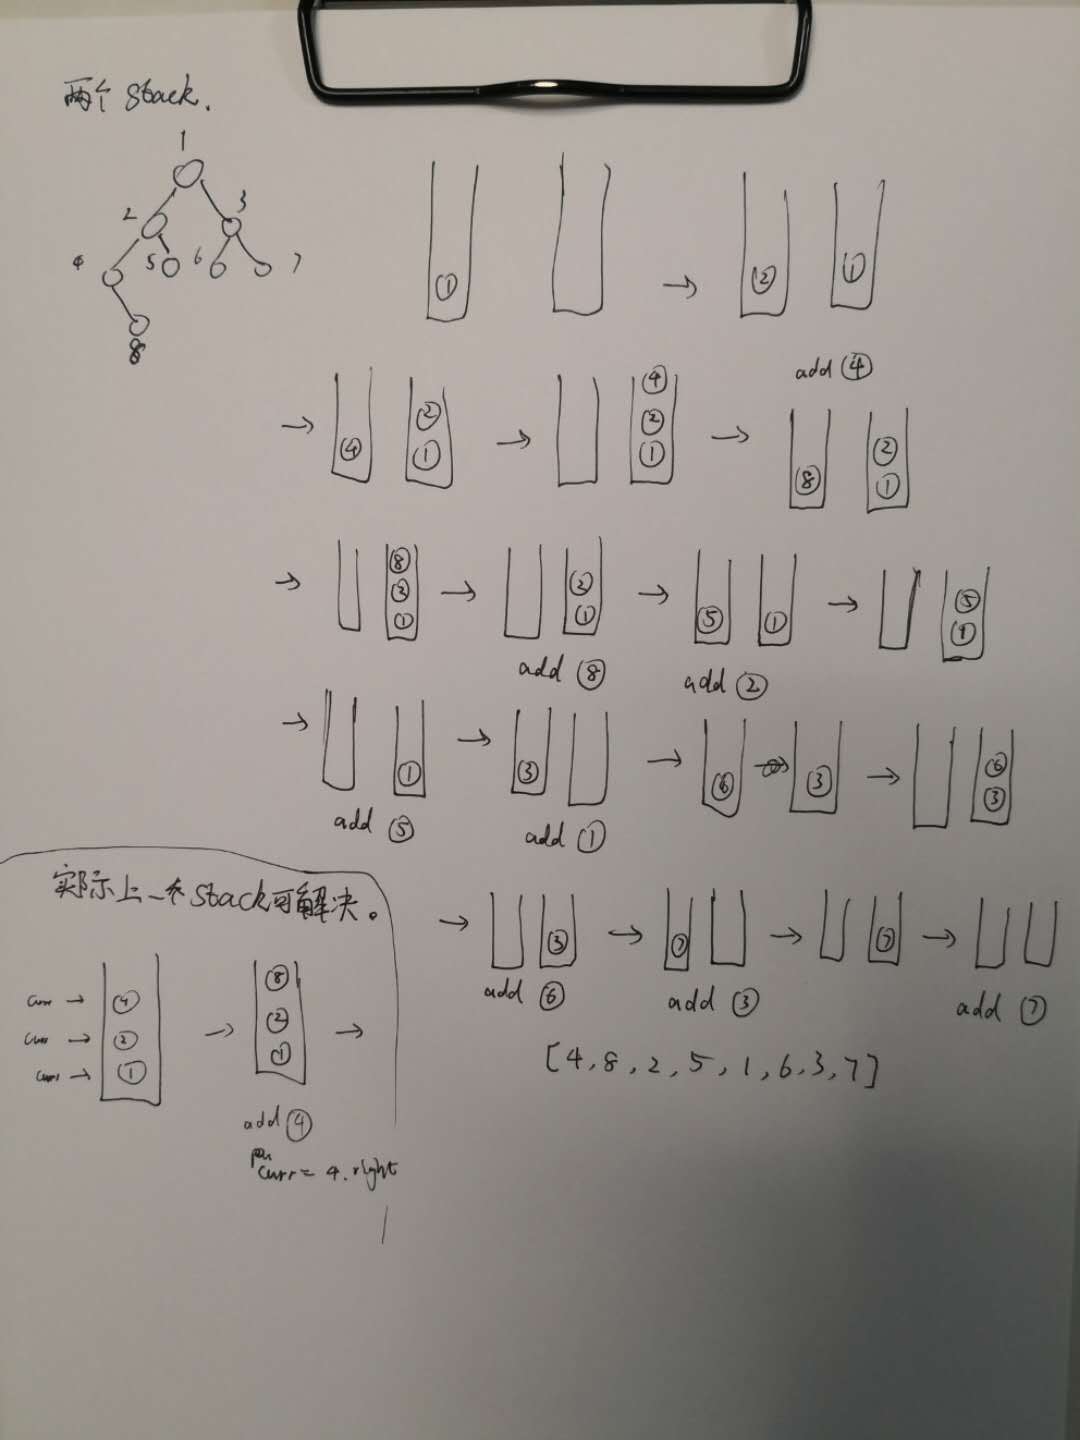 两个 stack.
1
2 3
4 5 6 7
8
① → ② ①
add ④
→ ④ ② ① → ④ ② ① → ⑧ ② ①
→ ⑧ ② ① → ② ① → ⑤ ① → ⑤ ①
add ⑧ add ②
→ ① → ③ → ⑥ → ③ → ⑥ ③
add ⑤ add ①
→ ③ → ⑦ → ⑦ →
add ⑥ add ③ add ⑦
[4, 8, 2, 5, 1, 6, 3, 7]
实际上一个stack可解决。
curr → ④ ⑧
curr → ② → ② →
curr → ① ①
add ④
curr = 4.right